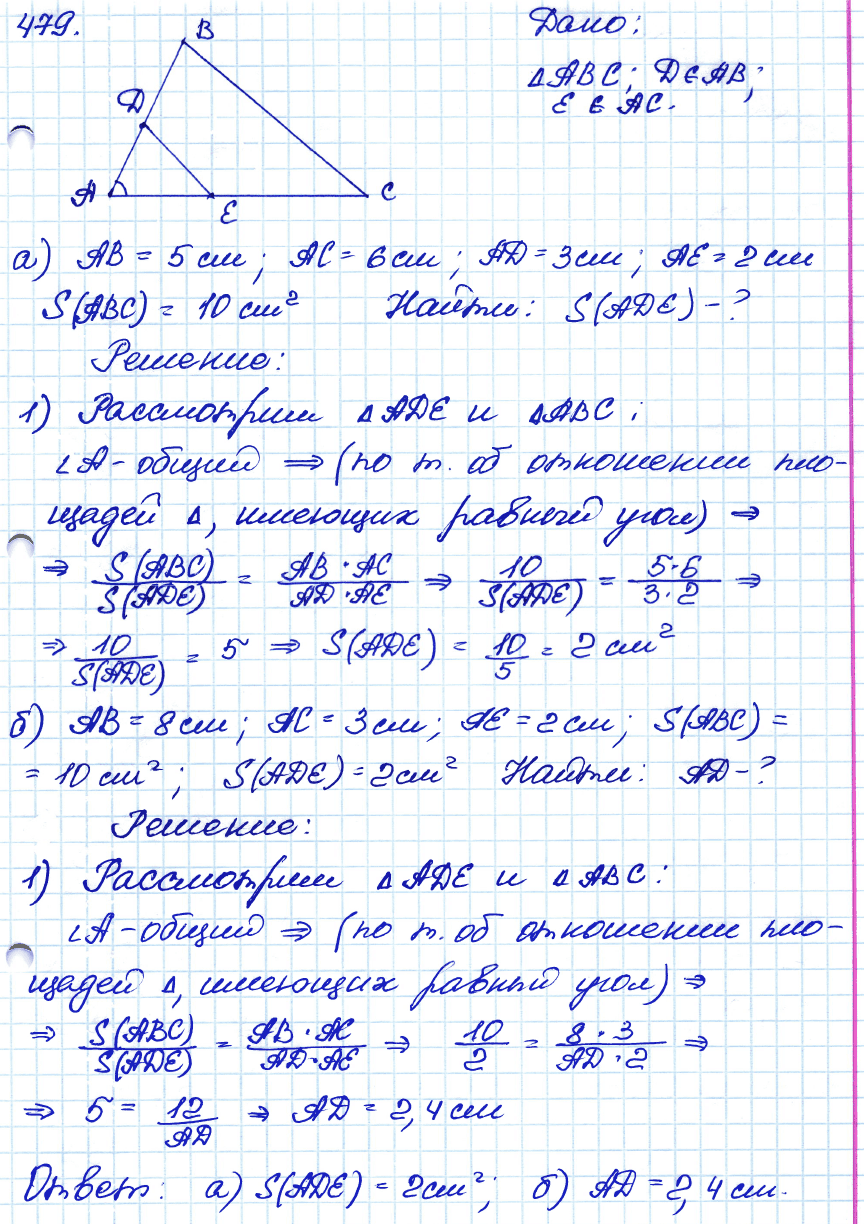 479.
Дано:
B
△ABC; D∈AB;
E ∈ AC.
D
A
E
C
а) AB = 5 см; AC = 6 см; AD = 3 см; AE = 2 см
S(ABC) = 10 см² Найти: S(ADE) - ?
Решение:
1) Рассмотрим △ADE и △ABC:
∠A - общий ⇒ (по т. об отношении пло-
щадей △, имеющих равный угол) ⇒
⇒ S(ABC)/S(ADE) = AB · AC/AD · AE ⇒ 10/S(ADE) = 5·6/3·2 ⇒
⇒ 10/S(ADE) = 5 ⇒ S(ADE) = 10/5 = 2 см²
б) AB = 8 см; AC = 3 см; AE = 2 см; S(ABC) =
= 10 см²; S(ADE) = 2 см² Найти: AD - ?
Решение:
1) Рассмотрим △ADE и △ABC:
∠A - общий ⇒ (по т. об отношении пло-
щадей △, имеющих равный угол) ⇒
⇒ S(ABC)/S(ADE) = AB · AC/AD · AE ⇒ 10/2 = 8 · 3/AD · 2 ⇒
⇒ 5 = 12/AD ⇒ AD = 2,4 см
Ответ: а) S(ADE) = 2 см²; б) AD = 2,4 см.